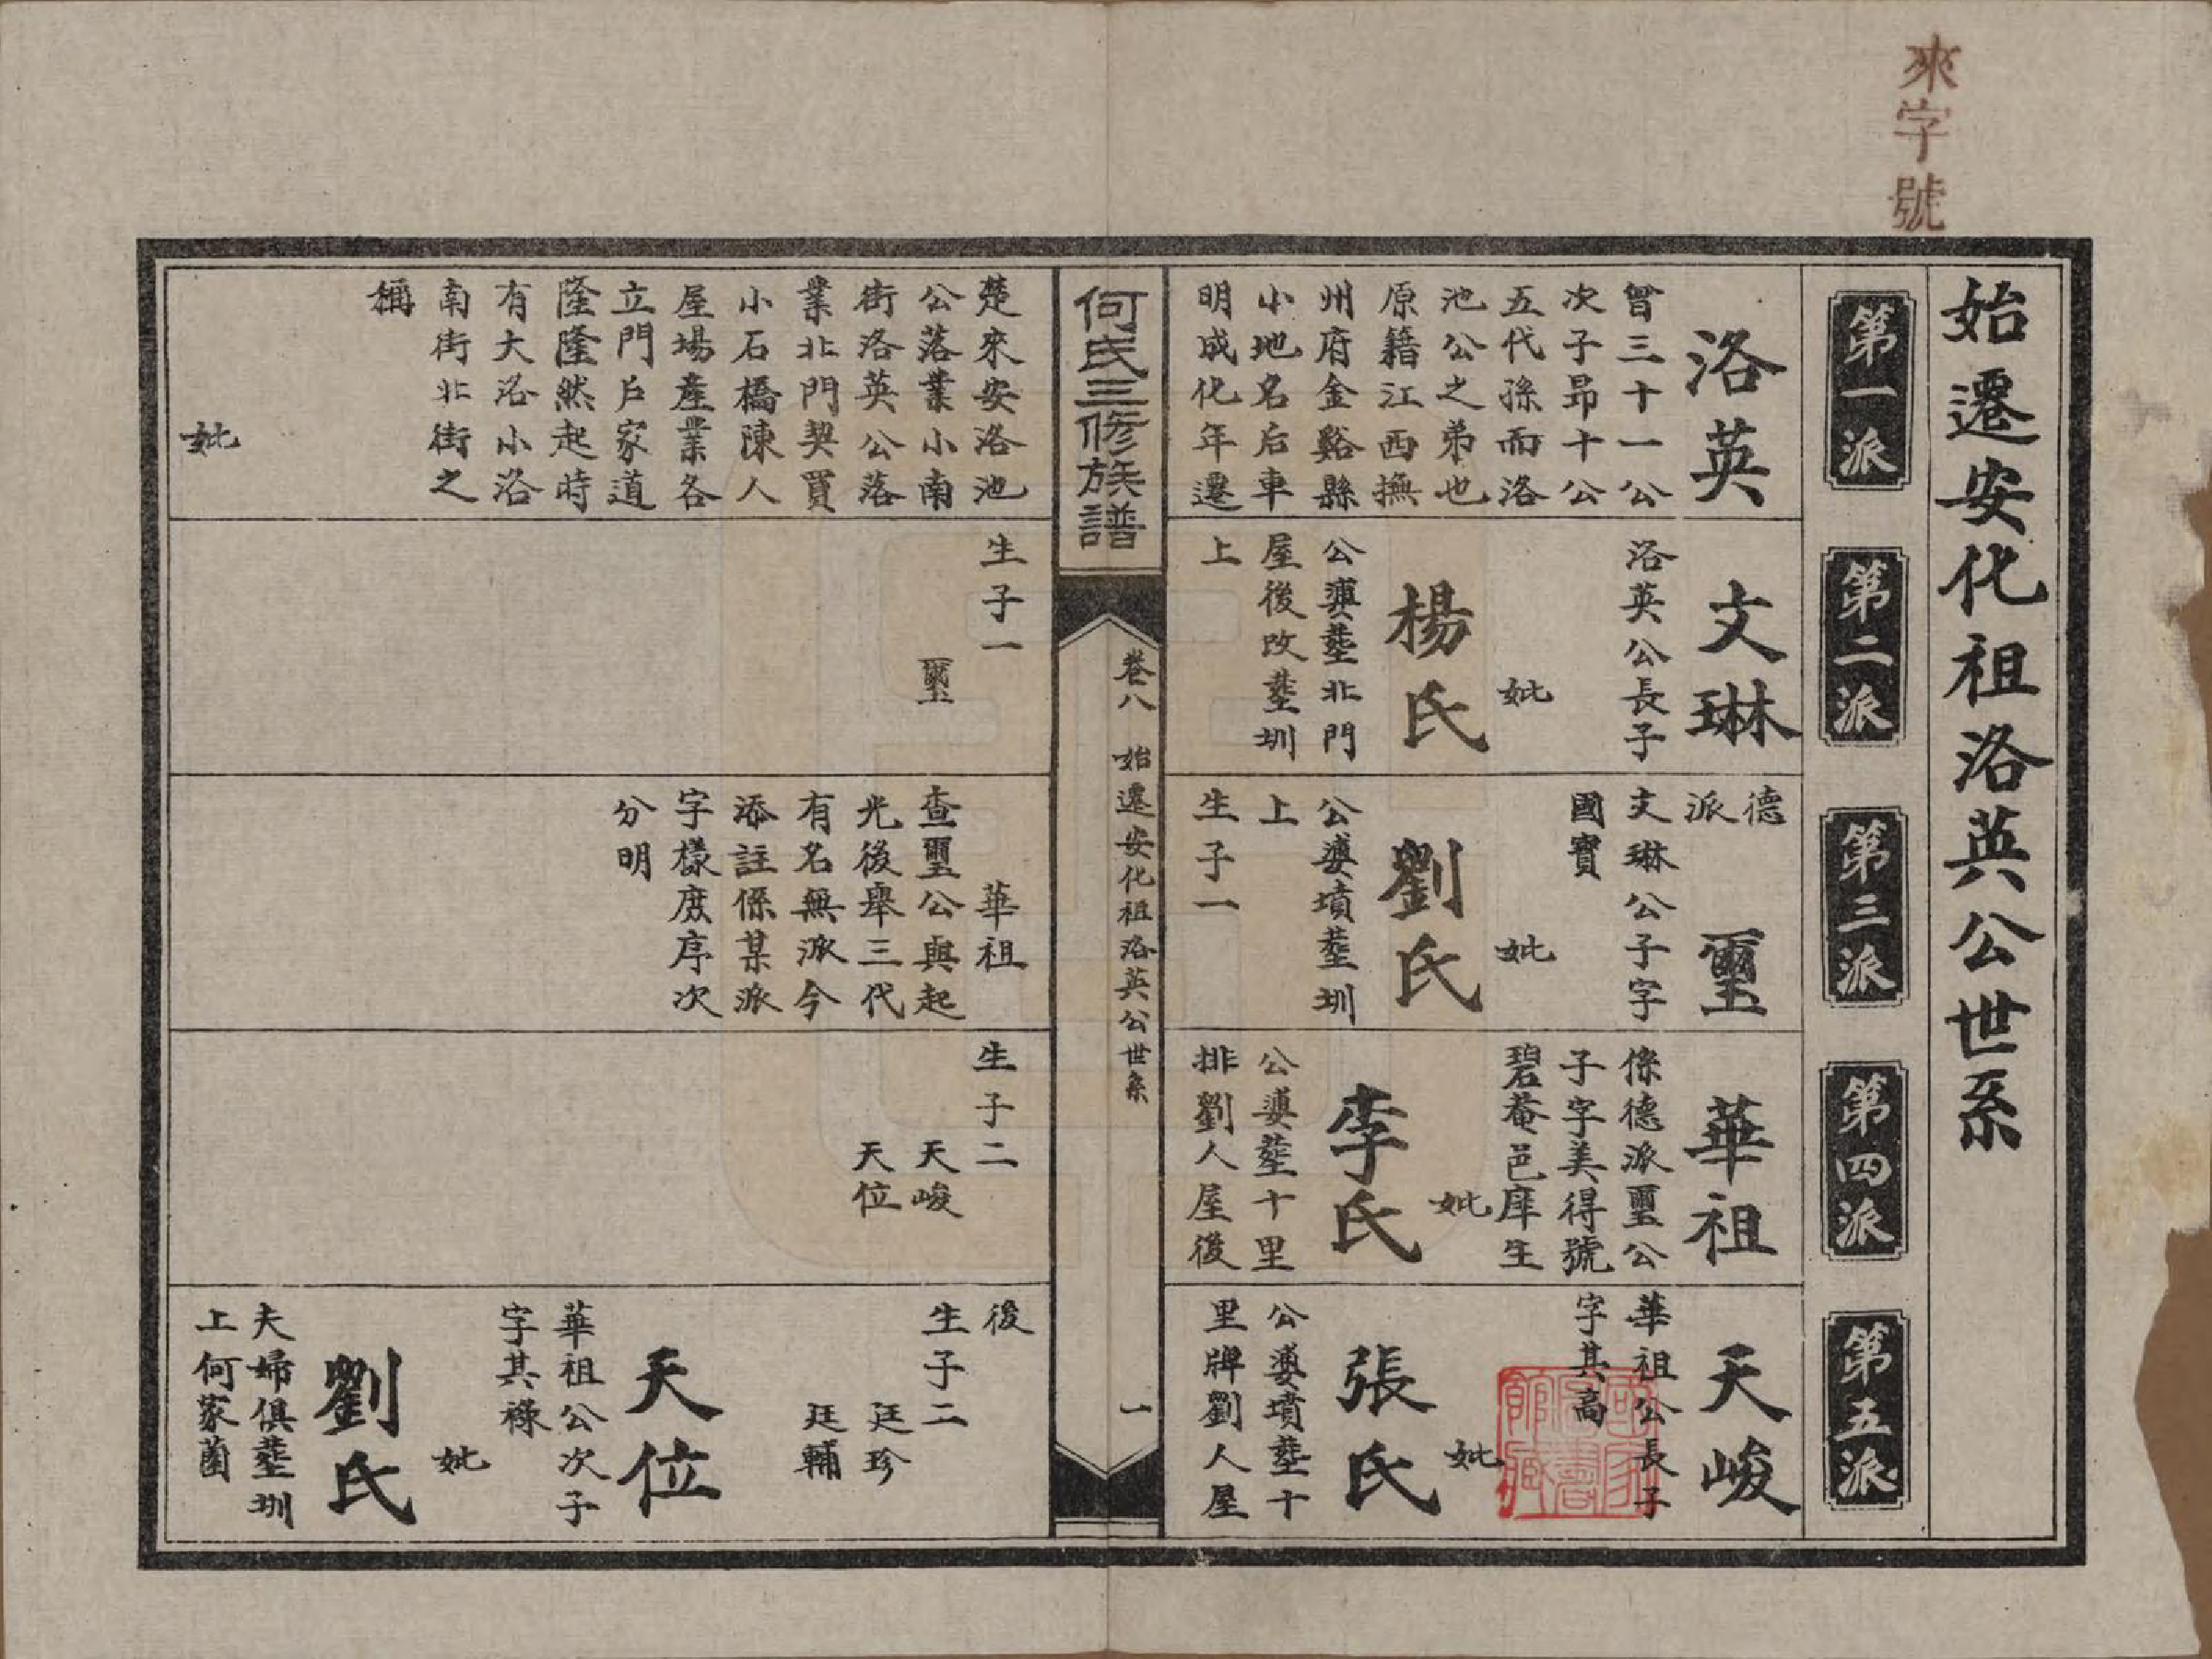 來字號
始遷安化祖洛英公世系
第一派
洛英
曾三十一公
次子昻十公
五代孫而洛
池公之弟也
原籍江西撫
州府金谿縣
小地名后車
明成化年遷
楚來安洛池
公落業小南
街洛英公落
業北門契買
小石橋陳人
屋場產業各
立門戶家道
隆隆然起時
有大洛小洛
南街北街之
稱
妣
第二派
文琳
洛英公長子
妣
楊氏
公𡞵塟北門
屋後改塟圳
上
生子一
璽
第三派
德
派
璽
文琳公子字
國寶
妣
劉氏
公𡞵墳塟圳
上
生子一
華祖
查璽公與起
光後舉三代
有名無派今
添註係某派
字樣庶序次
分明
第四派
華祖
係德派璽公
子字美得號
碧菴邑庠生
妣
李氏
公𡞵塟十里
排劉人屋後
生子二
天峻
天位
第五派
天峻
華祖公長子
字其高
妣
張氏
公𡞵墳塟十
里牌劉人屋
後
生子二
廷珍
廷輔
天位
華祖公次子
字其祿
妣
劉氏
夫婦俱塟圳
上何家菌
何氏三修族譜
卷八 始遷安化祖洛英公世系
一